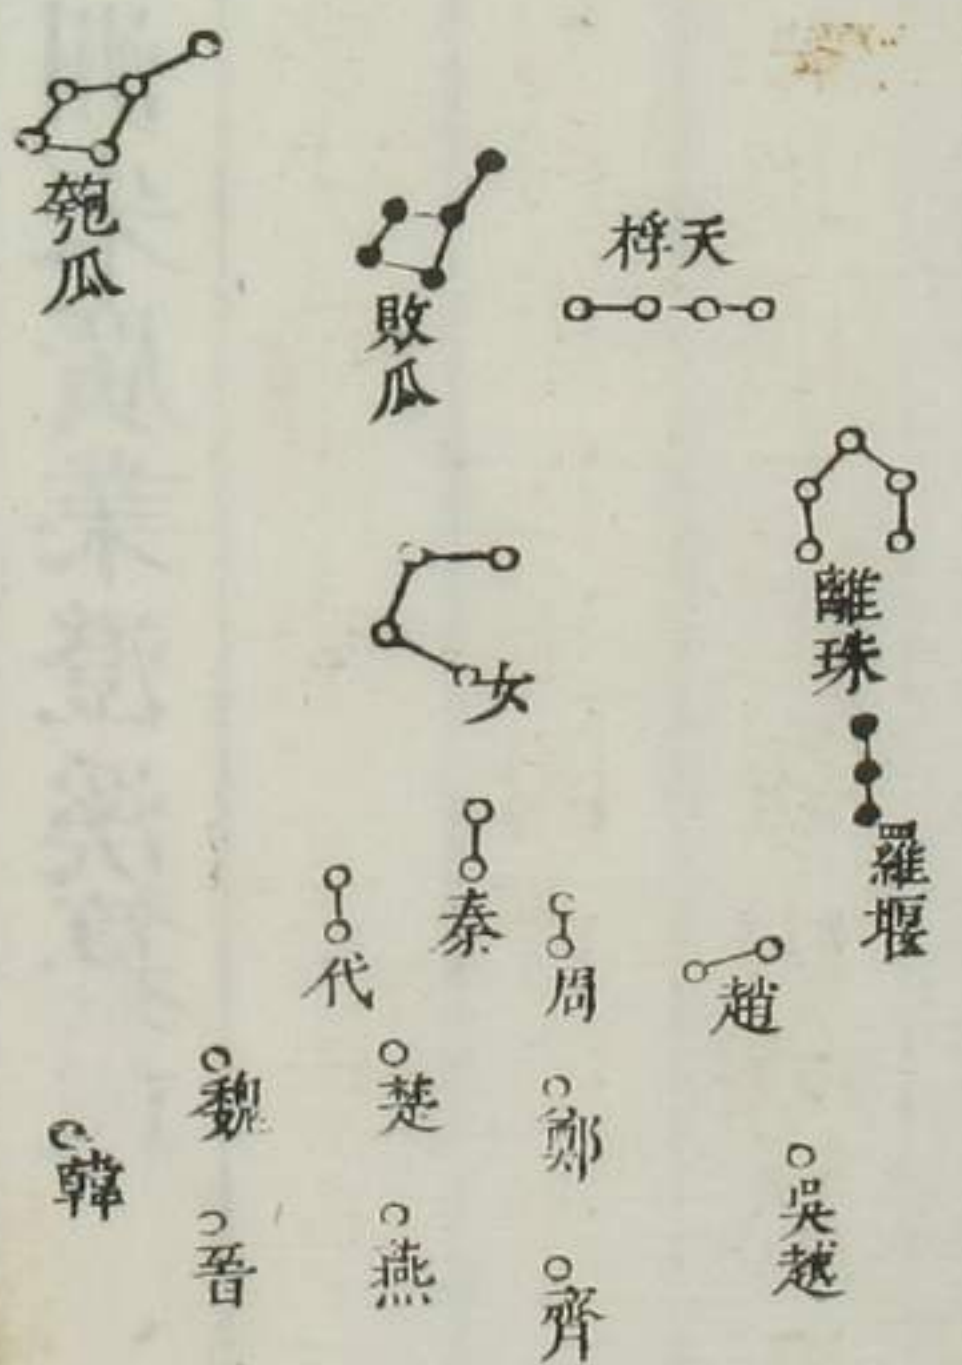 匏瓜
敗瓜
天桴
離珠
女
羅堰
秦
代
周
趙
魏
楚
鄭
韓
吳越
晉
燕
齊